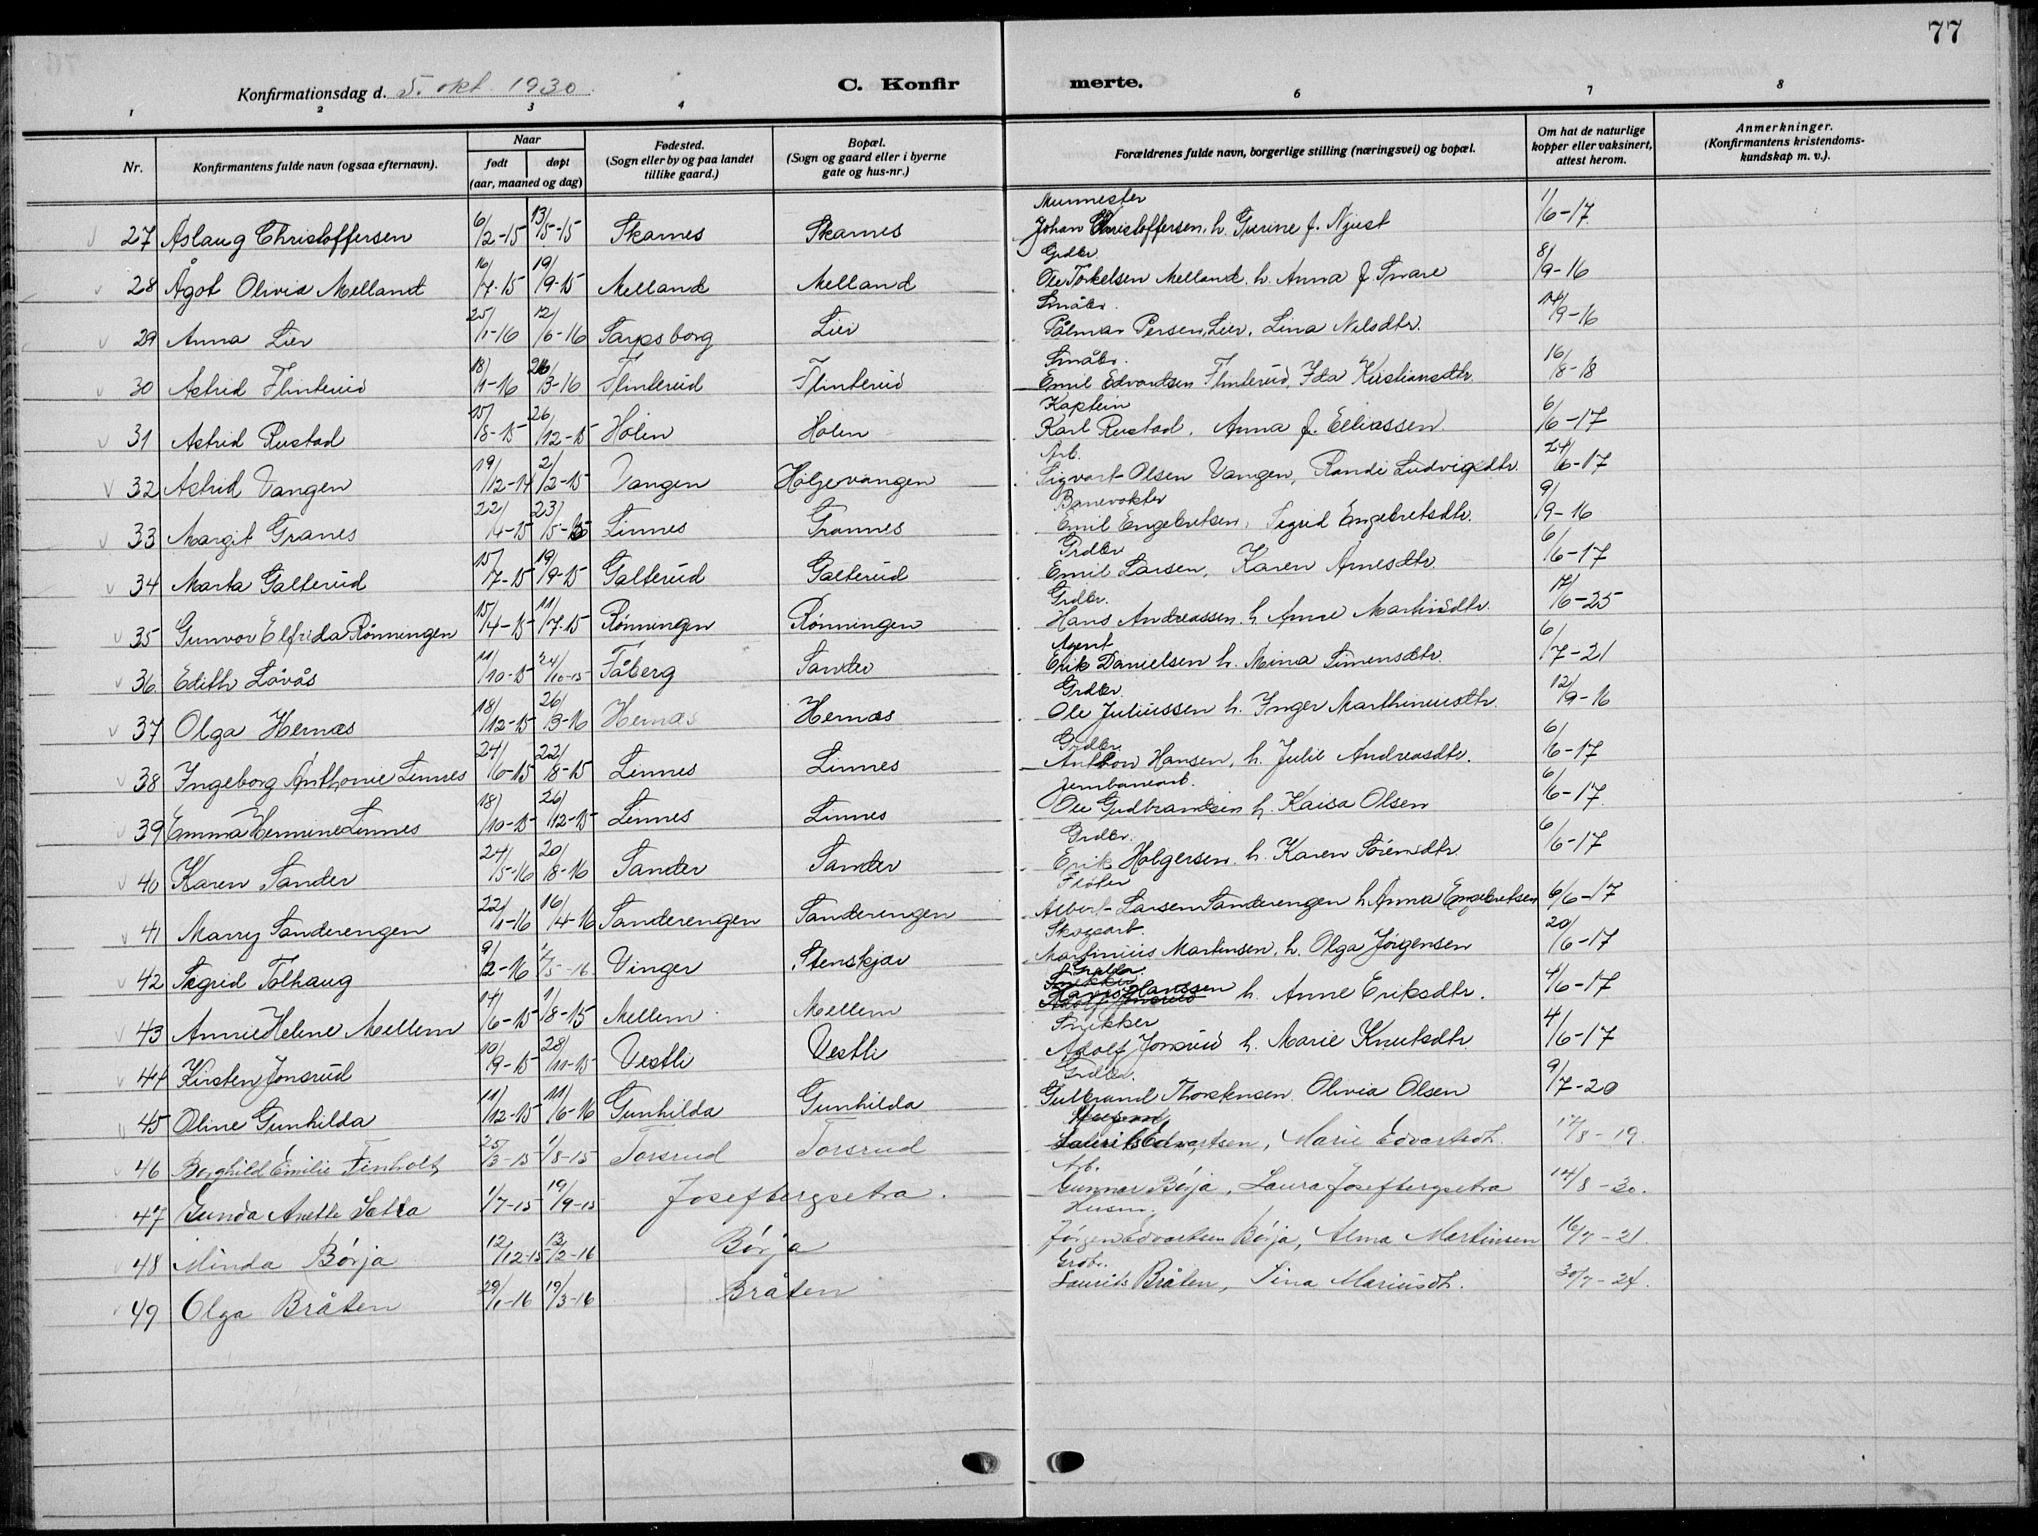 77
Konfirmationsdag d. 5. okt. 1930.
C. Konfir
merte.
1 2 3 4 6 7 8
Nr.
Konfirmantens fulde navn (ogsaa efternavn).
Naar
født
døpt
(aar, maaned og dag)
Fødested.
(Sogn eller by og paa landet
tillike gaard.)
Bopæl.
(Sogn og gaard eller i byerne
gate og hus-nr.)
Forældrenes fulde navn, borgerlige stilling (næringsvei) og bopæl.
Om hat de naturlige
kopper eller vaksinert,
attest herom.
Anmerkninger.
(Konfirmantens kristendoms-
kundskap m. v.).
Murmester
27 Aslaug Christoffersen 6/2-15 13/5-15 Skarnes Skarnes Johan Christoffersen, h. Gurine f. Njust 1/6-17
Grdbr.
28 Ågot Olivia Melland 16/7-15 19/9-15 Melland Melland Ole Torkelsen Melland. h. Anna f. Snare 8/9-16
Småbr.
29 Anna Lier 25/1-16 12/6-16 Sarpsborg Lier Pålmar Persen Lier, Lina Nilsdtr. 14/9-16
Småbr.
30 Astrid Flinterud 18/1-16 26/3-16 Flinterud Flinterud Emil Edvardsen Flinterud, Ida Kristiansdtr. 16/8-18
Kaptein
31 Astrid Rustad 15/8-15 26/12-15 Holen Holen Karl Rustad, Anna f. Eliassen. 6/6-17
Arb.
32 Astrid Vangen 19/12-14 2/2-15 Vangen Holjevangen Sigvart Olsen Vangen, Randi Ludvigsdtr. 24/6-17
Banevokter
33 Margit Granes 22/4-15 23/5-15 Linnes Grannes Emil Engebretsen, Sigrid Engebretsdtr. 9/9-16
Grdbr
34 Marta Galterud 15/7-15 19/9-15 Galterud Galterud Emil Larsen, Karen Arnesdtr. 6/6-17
Grdbr.
35 Gunvor Elfrida Rønningen 15/4-15 11/7-15 Rønningen Rønningen Hans Andreassen h. Anne Martinsdtr. 17/6-25
Agent
36 Edith Løvås 11/10-15 24/10-15 Fåberg Sander Erik Danielsen h. Mina Simensdtr. 6/7-21
Grdbr.
37 Olga Hernæs 18/12-15 26/3-16 Hernæs Hernæs Ole Juliussen h. Inger Marthinusdtr. 12/9-16
Grdbr
38 Ingeborg Anthonie Linnes 24/6-15 22/8-15 Linnes Linnes Anthon Hansen, h. Julie Andreasdtr. 6/6-17
Jernbanearb.
39 Emma Hermine Linnes 18/10-15 26/12-15 Linnes Linnes Ole Gudbrandsen h. Kaisa Olsen 6/6-17.
Grdbr.
40 Karen Sander 24/5-16 20/8-16 Sander Sander Erik Holgersen h. Karen Sørensdtr. 6/6-17
Fløter
41 Marry Sanderengen 22/1-16 16/4-16 Sanderengen Sanderengen Albert Larsen Sanderengen h. Anna Engebretsen 6/6-17
Skogsarb.
42 Sigrid Tolhaug 9/2-16 /5-16 Vinger Stenskjær Martinius Martinsen, h. Olga Jørgensen 20/6-17
Grdbr.
43 Annie Helene Mellem 14/6-15 1/8-15 Mellem Mellem Hans Hanssen h. Anne Eriksdtr. 4/6-17
Snikker
44 Kirsten Jonsrud 10/9-15 28/11-15 Vestli Vestli Adolf Jonsrud h. Marie Knutsdtr. 4/6-17
Grdbr.
45 Oline Gunhilda 11/12-15 11/6-16 Gunhilda Gunhilda Gulbrand Thorstensen Olivia Olsen 9/7-20
46 Borghild Emilie Finholt 25/3-15 1/8-15 Torsrud Torsrud Laurits Edvartsen, Marie Edvartsdt. 17/8-19.
Arb.
47 Gunda Anette Sætra 1/7-15 19/9-15 Josefbergsetra. Gunnar Børja, Laura Josefbergsetra 14/8-30.
Husm.
48 Minda Børja 12/12-15 13/2-16 Børja Jørgen Edvartsen Børja, Alma Martinsen 16/7-21.
Grdb.
49 Olga Bråten 29/1-16 19/3-16 Bråten Laurits Bråten, Sina Mariusdt. 30/7-24.